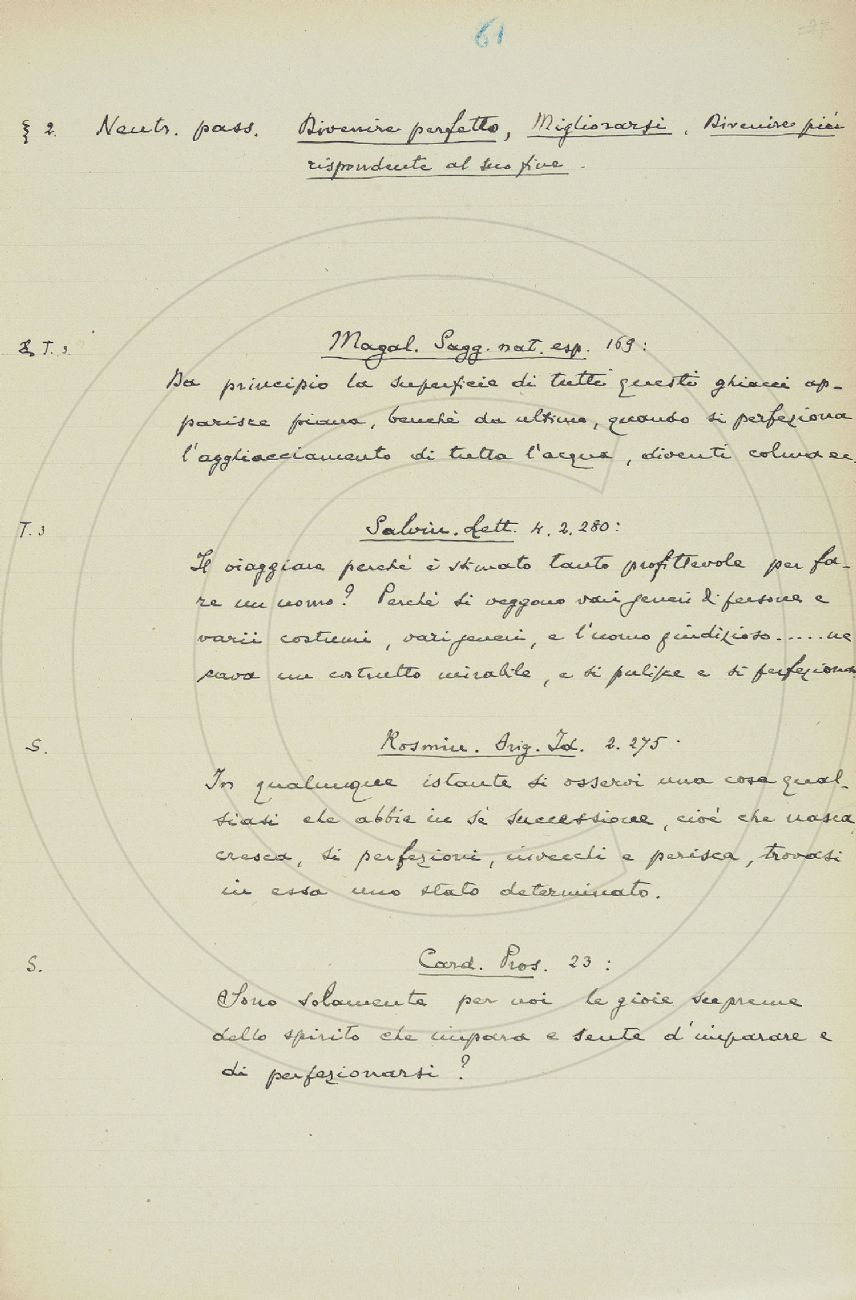 61
§ 2. Neutr. pass. Divenire perfetto, Migliorarsi, Divenire più
rispondente al suo fine.
T. 3
Magal. Sagg. nat. esp. 169:
Da principio la superficie di tutti questi ghiacci ap-
parisce piana, benchè da ultimo, quando si perfeziona
l'agghiacciamento di tutta l'acqua, diventi colma ec.
T. 3
Salvin. Lett. 4. 2. 280:
Il viaggiare perchè è stimato tanto profittevole per fa-
re un uomo? Perchè si veggono vari generi di persone e
varii costumi, vari generi, e l'uomo giudizioso..... ne
cava un costrutto mirabile, e si pulisce e si perfeziona
S.
Rosmin. Orig. Id. 2. 275.
In qualunque istante si osservi una cosa qual-
siasi che abbia in sè successione, cioè che nasca,
cresca, si perfezioni, invecchi e perisca, trovasi
in essa uno stato determinato.
S.
Card. Pros. 23:
Sono solamente per voi le gioie supreme
dello spirito che impara e sente d'imparare e
di perfezionarsi?